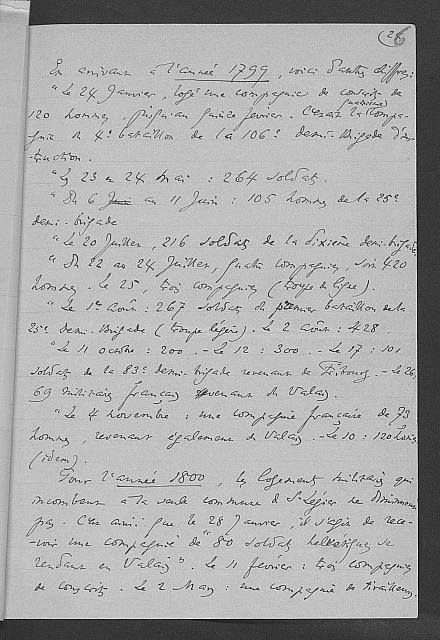 26
En arrivant à l'année 1799, voici d'autres chiffres :
"Le 24 Janvier, logé une compagnie de conscrits de
120 hommes, jusqu'au quinze février. C'était la quatrième compa-
gnie du 4e bataillon de la 106e demi-brigade d'ins-
truction.
"Les 23 et 24 mai : 264 soldats.
"Du 6 Juin au 11 Juin : 105 hommes de la 25e
demi-brigade
"Le 20 Juillet, 216 soldats de la dixième demi-brigade
"Du 22 au 24 Juillet, quatre compagnies, soit 420
hommes. Le 25, trois compagnies (troupe de ligne).
"Le 1er Août : 267 soldats du premier bataillon de la
25e demi-brigade (troupe légère). Le 2 Août : 428.
"Le 11 octobre : 200. - Le 12 : 300. - Le 17 : 101
soldats de la 83e demi-brigade revenant de Fribourg. - Le 26 :
69 militaires français revenant du Valais.
"Le 4 novembre : une compagnie française de 73
hommes, revenant également du Valais. - Le 10 : 120 hommes
(idem).
Pour l'année 1800, les logements militaires qui
incombent à la seule commune de St-Légier ne diminuent
pas. C'est ainsi que le 28 Janvier, il s'agit de rece-
-voir une compagnie de "80 soldats helvétiques se
rendant en Valais". Le 11 février : trois compagnies
de conscrits. Le 2 Mars : une compagnie de tirailleurs.